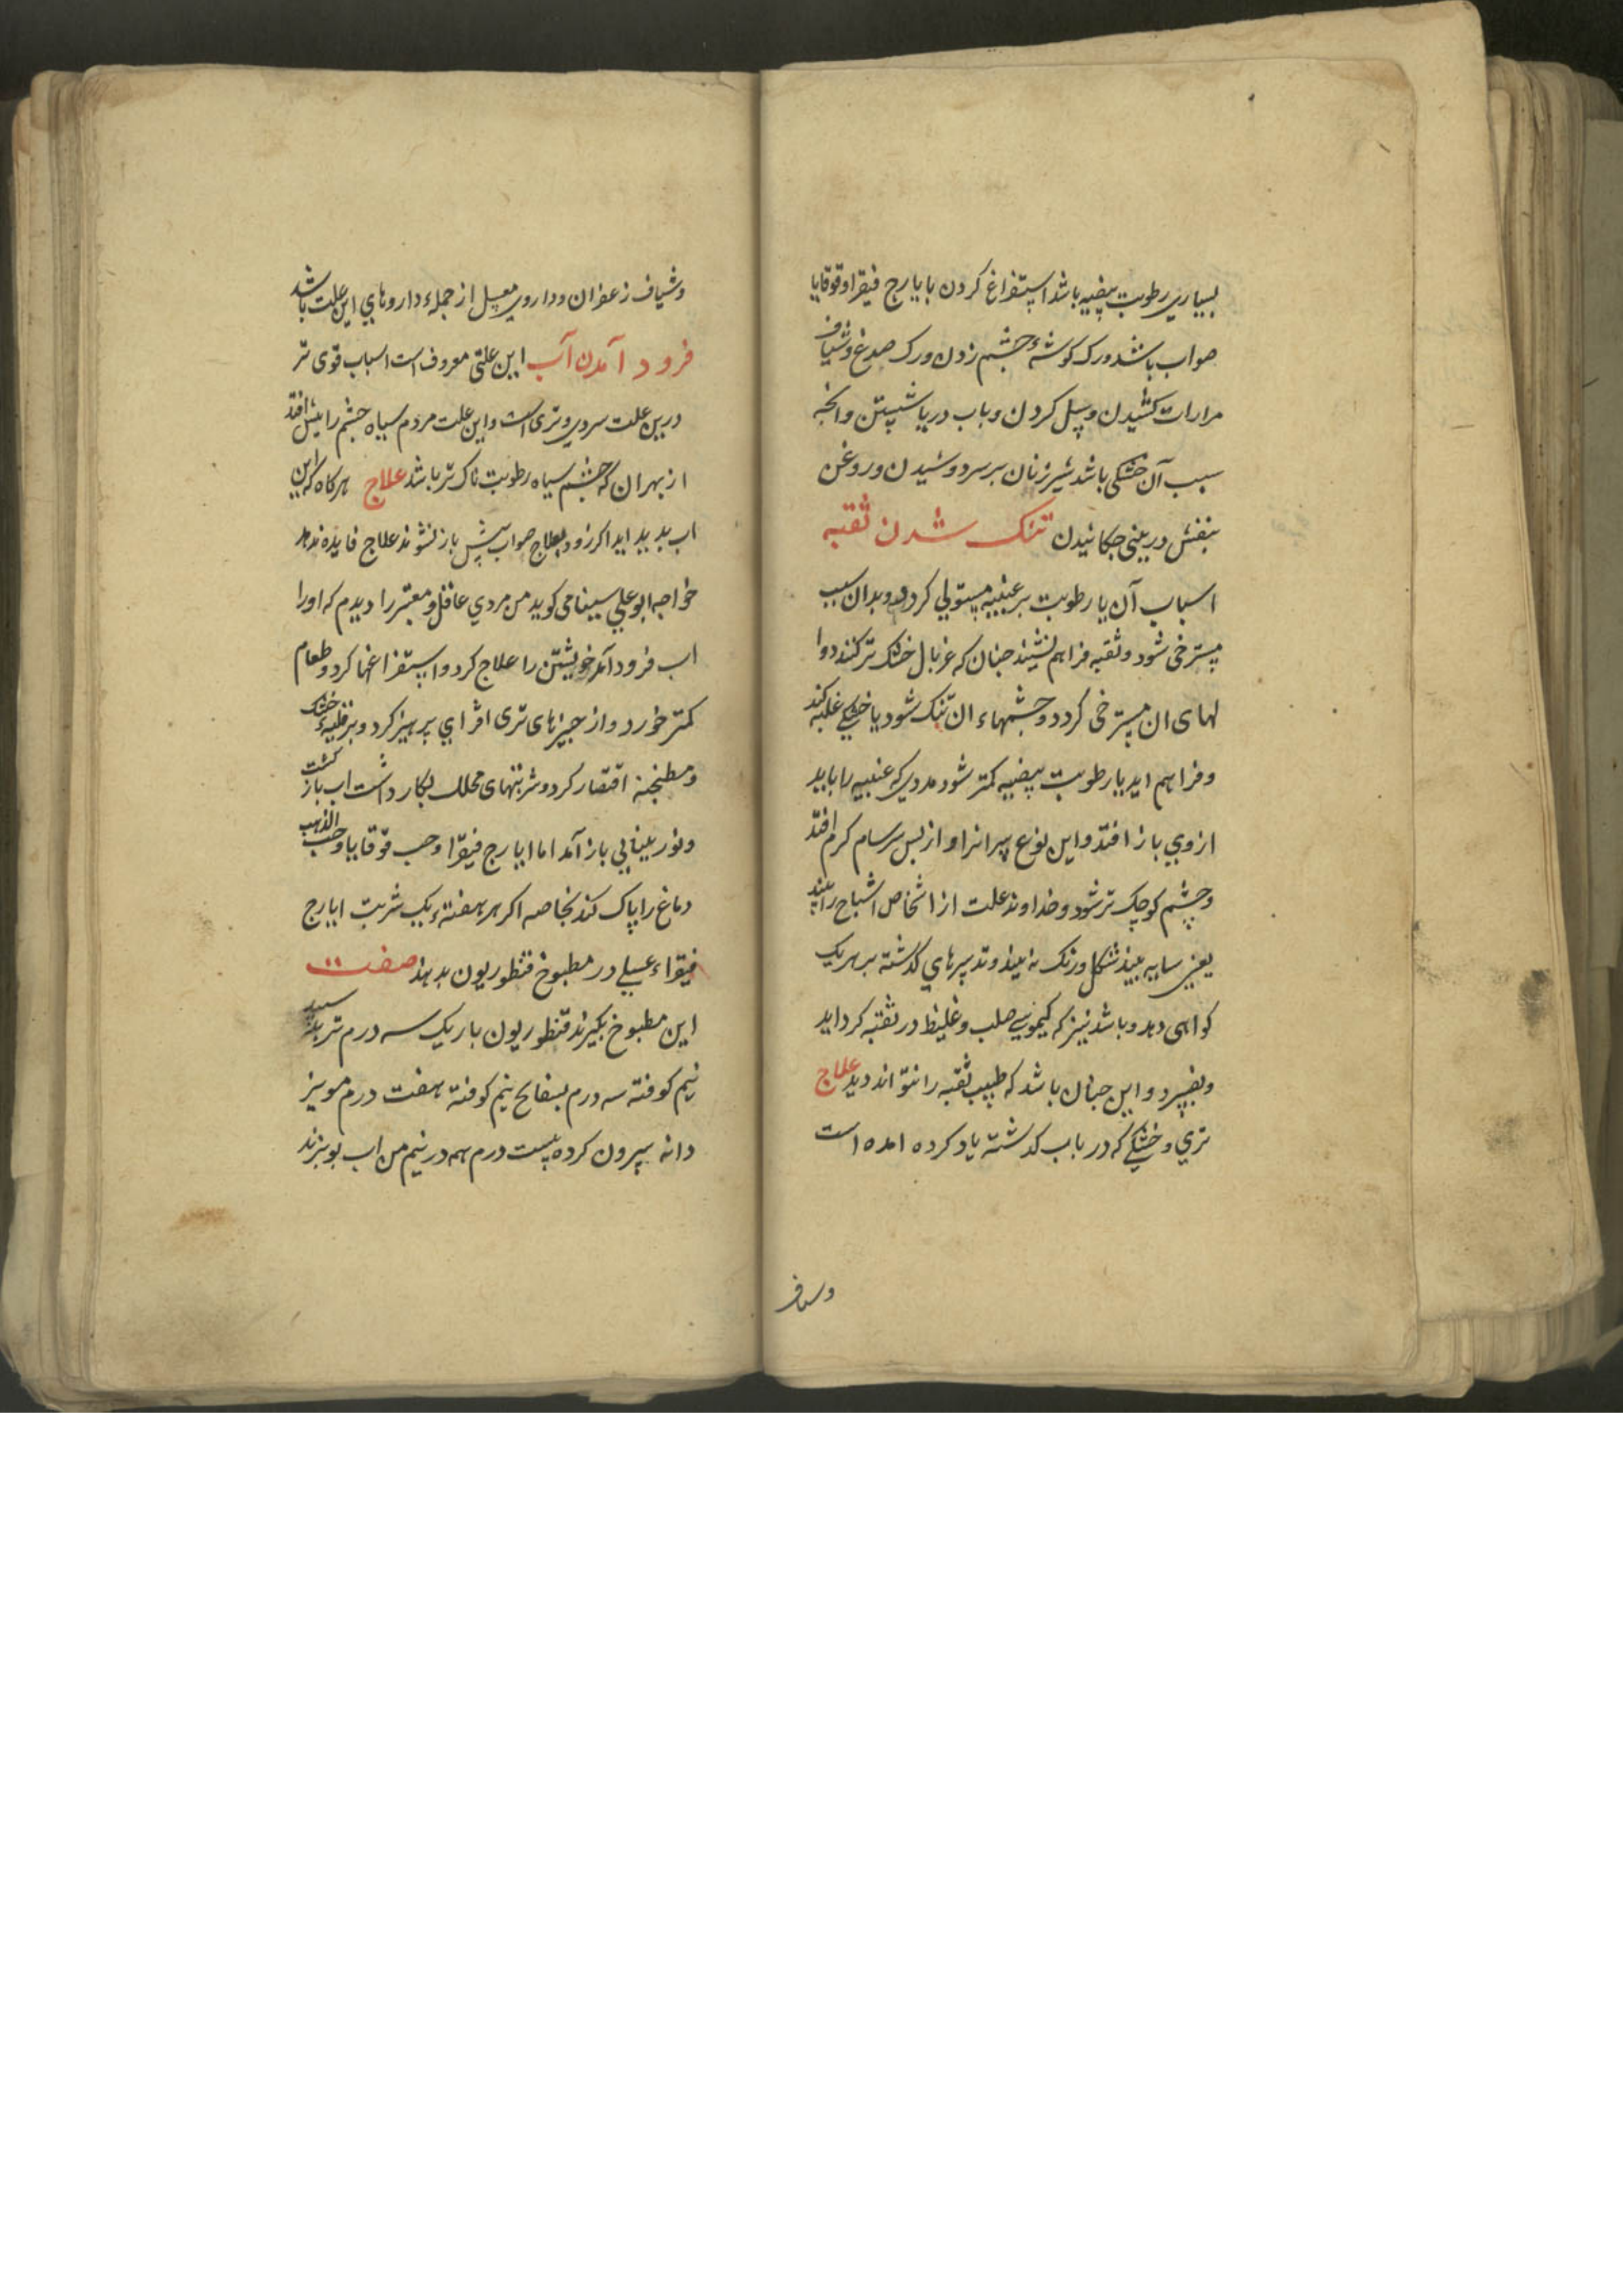 بسیاری رطوبت بیضیه باشد استفراغ کردن بایارج فیقرا وقوقایا
صواب باشد ورک کوشهٔ چشم زدن ورک صدغ وشیاف
مرارات کشیدن وسبل کردن وباب دریا شستن وانچه
سبب آن خشکی باشد شیر زنان بر سر دوشیدن وروغن
بنفش در بینی چکانیدن تنک شدن ثقبه
اسباب آن یا رطوبت بر عنبیه مستولی کردد وبدان سبب
مسترخی شود وثقبه فراهم نشیند چنان که غربال خشک تر کنند دوا
لهای ان مسترخی کردد وچشمهاء ان تنک شود یا خشکی غلبه کند
وفراهم اید یا رطوبت بیضیه کمتر شود مددی که عنبیه را باید
ازوی باز افتد واین نوع پیرانرا و از پس سرسام کرم افتد
وچشم کوچک تر شود وخداوند علت از اشخاص اشباح را بیند
یعنی سایه بیند شکل ورنک نه بیند وتدبیرهای کذشته بر هر یک
کواهی دهد وباشد نیز که کیموسی صلب وغلیظ در ثقبه کرد اید
وبفسرد واین چنان باشد که طبیب ثقبه را نتواند دید علاج
تری وخشکی که در باب کذشته یاد کرده امده است
وشیاف
وشیاف زعفران وداروی معسل از جملهٔ داروهای این علت باشد
فرود آمدن آب این علتی معروف است اسباب قوی تر
درین علت سردی وتری است واین علت مردم سیاه چشم را بیش افتد
از بهر ان که چشم سیاه رطوبت ناک تر باشد علاج هرکاه که این
اب بدید اید اکر زود بعلاج صواب پیش باز نشوند علاج فایده ندهد
خواجه ابوعلی سینا می کوید من مردی عاقل ومعتبر را دیدم که اورا
اب فرود آمد خویشتن را علاج کرد واستفراغها کرد وطعام
کمتر خورد واز چیزهای تری افزای پرهیز کرد وبر قلیهٔ خشک
ومطنجنه اقتصار کرد وشربتهای محلل بکار داشت اب باز کشت
ونور بینایی باز آمد اما ایارج فیقرا وحب قوقایا وحب الذهب
دماغ را پاک کند بخاصه اکر هر هفتهٔ یک شربت ایارج
فیقراء عسلی در مطبوخ قنطوریون بدهند صفت
این مطبوخ بکیرند قنطوریون باریک سه درم تربد سپید
نیم کوفته سه درم بسفایج نیم کوفته هفت درم مویز
دانه بیرون کرده بیست درم همه در نیم من اب بپزند